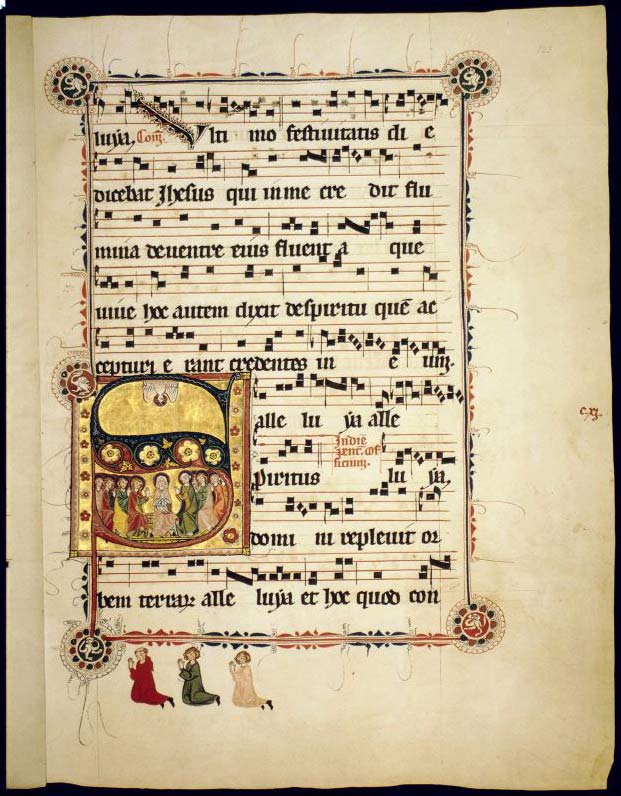 luya. Com. Vlti mo festiuitatis di e
dicebat Jhesus qui in me cre dit flu
mina de uentre eius fluent a que
uiue hoc autem dixit de spiritu quē ac
cepturi e rant credentes in e um.
alle lu ya alle
In diē
penť. of
ficium.
Spiritus lu ya.
domi ni repleuit or
bem terraꝝ alle luya et hoc quod con
c.xj.